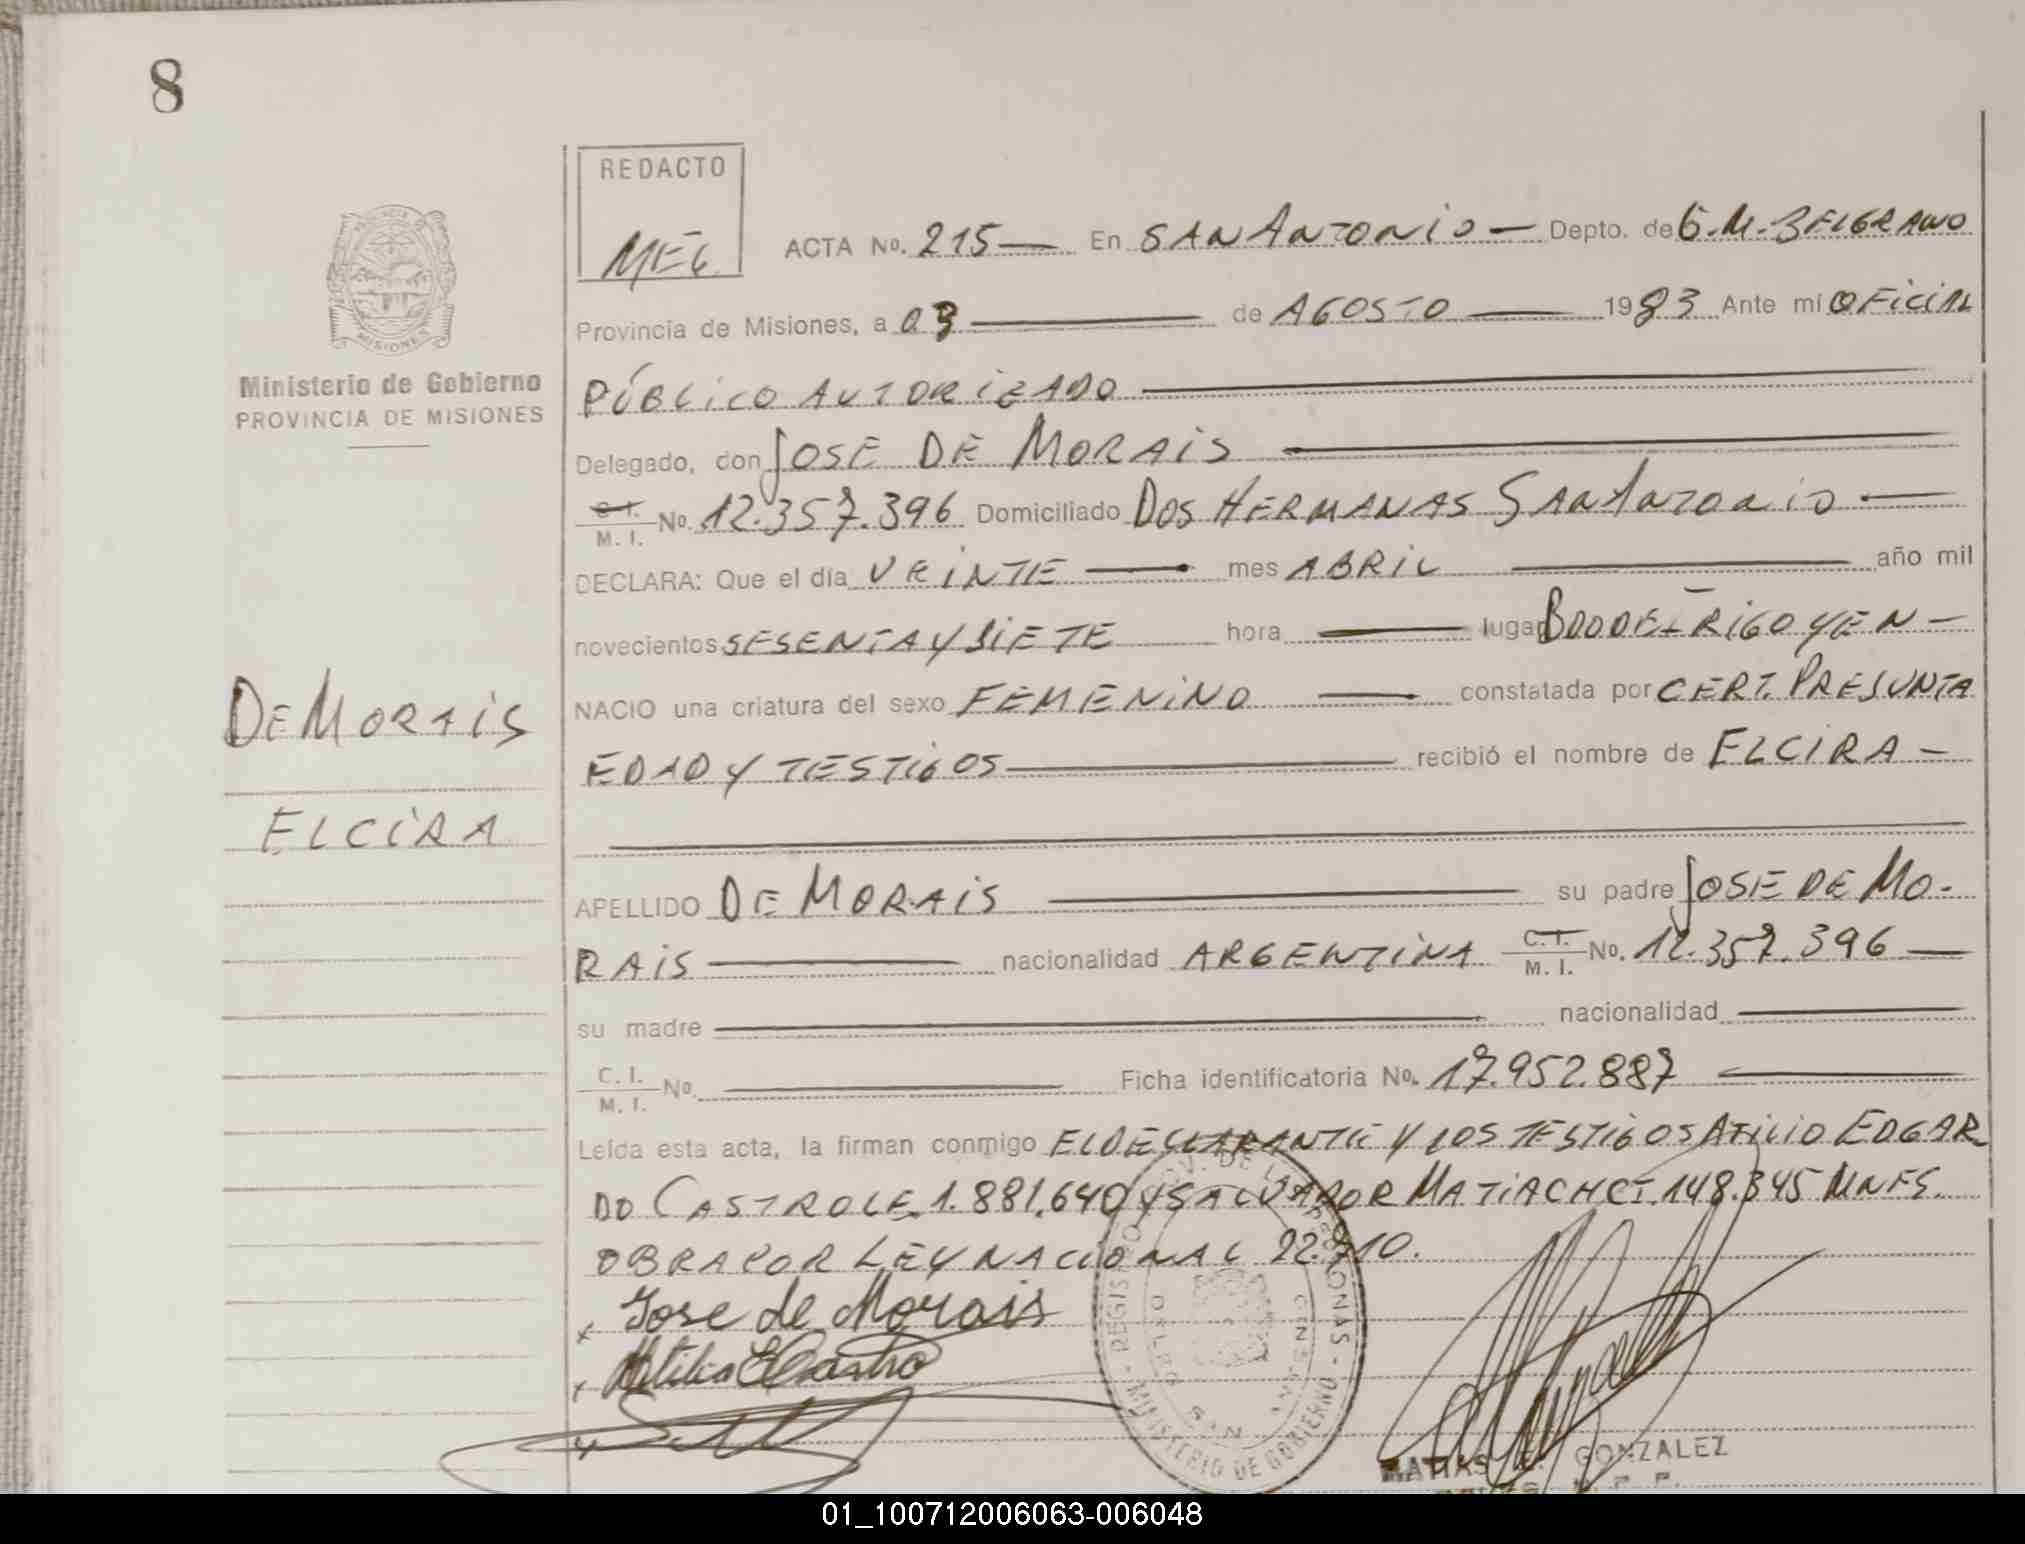 8
REDACTO
MEG.
ACTA No. 215 — En SAN ANTONIO — Depto. de G.M. BELGRANO
Provincia de Misiones, a 03 — de AGOSTO — 1983 Ante mí OFICIAL
PÚBLICO AUTORIZADO —
Delegado, don JOSE DE MORAIS —
C.I. M.I. No. 12.357.396 Domiciliado DOS HERMANAS SAN ANTONIO —
DECLARA: Que el día VEINTE — mes ABRIL — año mil
novecientos SESENTA Y SIETE hora — lugar BDO DE IRIGOYEN —
NACIO una criatura del sexo FEMENINO — constatada por CERT. PRESUNTA
EDAD Y TESTIGOS — recibió el nombre de ELCIRA —
APELLIDO DE MORAIS — su padre JOSE DE MO-
RAIS — nacionalidad ARGENTINA C.I. M.I. No. 12.357.396 —
su madre — nacionalidad —
C.I. M.I. No. — Ficha identificatoria No. 17.952.887 —
Leída esta acta, la firman conmigo EL DECLARANTE Y LOS TESTIGOS ATILIO EDGAR
DO CASTRO LE. 1.881.640 Y SALVADOR MATIACH CI. 148.345 MNES.
OBRA POR LEY NACIONAL
x Jose de Morais
x Atilio E Castro
MATIAS E. GONZALEZ
Ministerio de Gobierno
PROVINCIA DE MISIONES
DE MORAIS
ELCIRA
REGISTRO PROV. DE LAS PERSONAS - MINISTERIO DE GOBIERNO
MISIONES
01_100712006063-006048